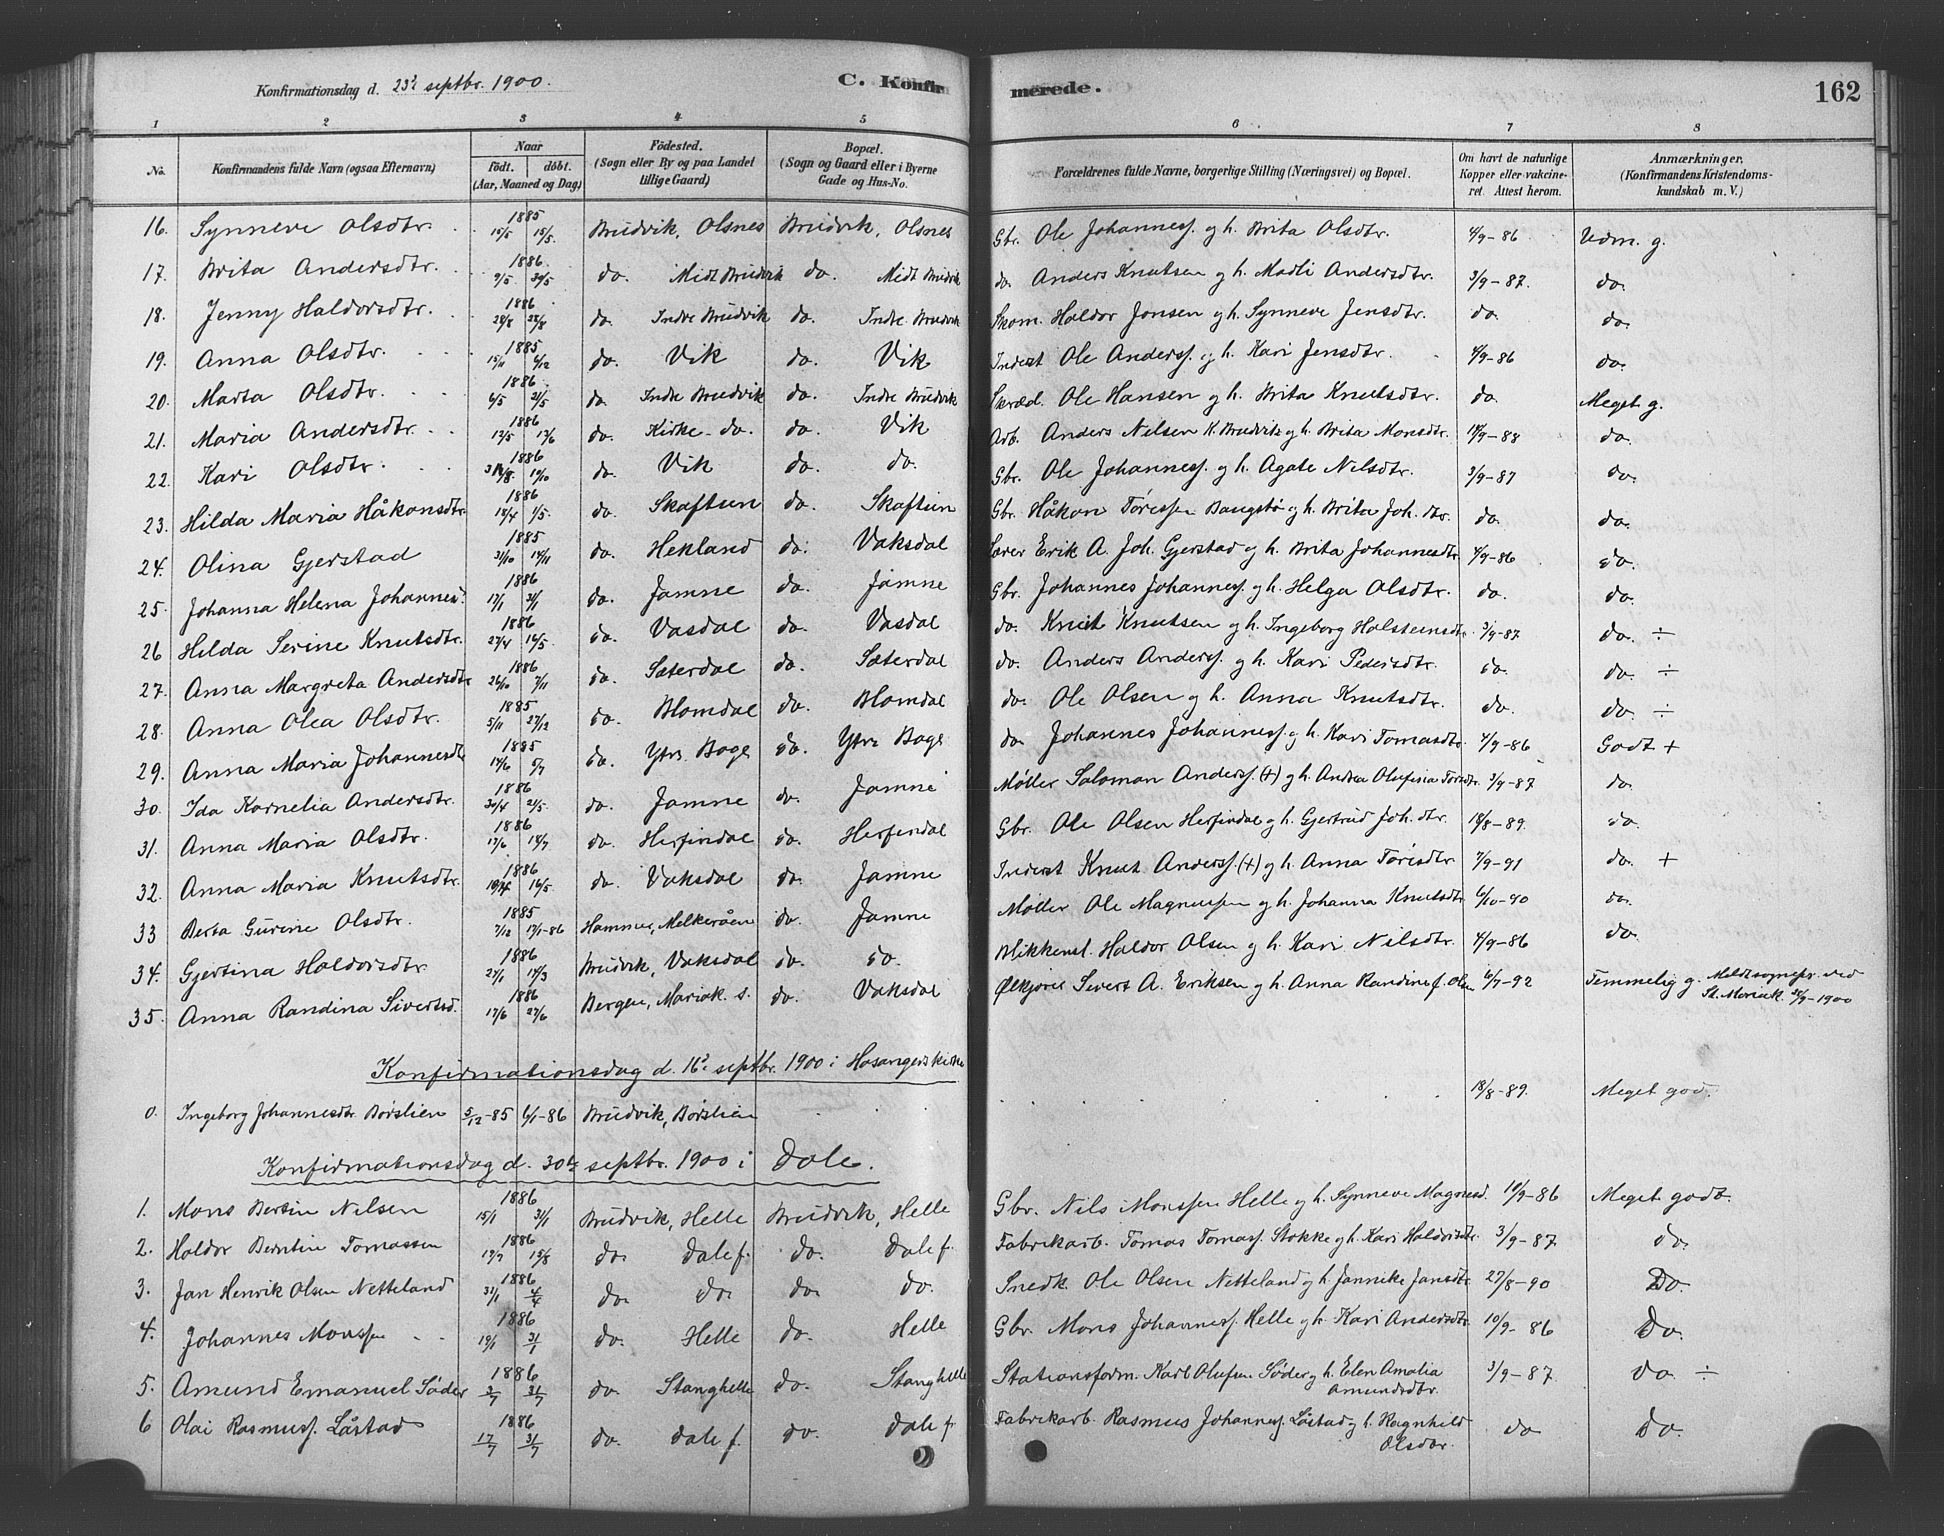 Konfirmationsdag d. 23d septbr. 1900. C. Konfirmerede. 162
1 2 3 4 5 6 7 8
No. Konfirmandens fulde Navn (ogsaa Efternavn) Naar födt. döbt. (Aar, Maaned og Dag) Födested. (Sogn eller By og paa Landet tillige Gaard) Bopæl. (Sogn og Gaard eller i Byerne Gade og Hus-No. Forældrenes fulde Navne, borgerlige Stilling (Næringsvei) og Bopæl. Om havt de naturlige Kopper eller vakcineret. Attest herom. Anmærkninger. (Konfirmandens Kristendomskundskab m. V.)
16. Synneve Olsdtr. 1885 15/5 15/5 Brudvik, Olsnes Brudvik, Olsnes Gbr. Ole Johanness. og h. Brita Olsdtr. 4/9-86 Udm. g.
17. Brita Andersdtr. 1886 9/5 30/5 do. Midt Brudvik do. Midt Brudvik do. Anders Knutsen og h. Madli Andersdtr. 3/9-87. do.
18. Jenny Haldorsdtr. 1886 28/8 28/8 do. Indre Brudvik do. Indre Brudvik Skom. Haldor Jonsen og h. Synneve Jensdtr. do. do.
19. Anna Olsdtr. 1885 15/11 6/12 do. Vik do. Vik Inderst Ole Anderss. og h. Kari Jensdtr. 4/9-86 do.
20. Marta Olsdtr. 1886 6/5 21/5 do. Indre Brudvik do. Indre Brudvik Skræd. Ole Hansen og h. Brita Knutsdtr. do. Meget g.
21. Maria Andersdtr. 1886 12/5 13/6 do. Kirke-do. do. Vik Arb. Anders Nilsen K. Brudvik og h. Brita Monsdtr. 18/9-88 do.
22. Kari Olsdtr. 1886 19/10 do. Vik do. do. Gbr. Ole Johanness. og h. Agate Nilsdtr. 3/9-87 do.
23. Hilda Maria Håkonsdtr 1886 18/4 1/5. do. Skaftun do. Skaftun Gbr. Håkon Tøressen Baugstø og h. Brita Joh. dtr. do. do.
24. Olina Gjerstad 1885 31/10 14/11 do. Hekland do. Vaksdal Lærer Erik A. Joh. Gjerstad og h. Brita Johannesdtr 4/9-86 do.
25. Johanna Helena Johannesd. 1886 17/1 31/1 do. Jamne do. Jamne Gbr. Johannes Johanness. og h. Helga Olsdtr. do. do.
26 Hilda Serine Knutsdtr. 1886 27/4 16/5. do. Vasdal do. Vasdal do. Knut Knutsen og h. Ingeborg Holsteinsdtr. 3/9-87 do. ÷
27. Anna Margreta Andersdtr 1886 26/10 7/11 do. Sæterdal do. Sæterdal do. Anders Anderss. og h. Kari Pedersdtr. do. do. ÷
28. Anna Olea Olsdtr. 1885 5/11 27/12 do. Blomdal do. Blomdal do. Ole Olsen og h. Anna Knutsdtr. do. do. ÷
29. Anna Maria Johannesdtr 1885 14/6 5/7 do. Ytre Boge do. Ytre Boge do. Johannes Johanness. og h. Kari Tomasdtr. 4/9-86 Godt +
30. Ida Kornelia Andersdtr. 1886 30/4 21/5. do. Jamne do. Jamne Møller Saloman Anderss. (+) og h. Andrea Olufina Torsdtr. 3/9-87 do.
31. Anna Maria Olsdtr. 1886 17/6 18/7 do. Herfindal do. Herfindal Gbr. Ole Olsen Herfindal og h. Gjertrud Joh. dtr. 18/8-89. do.
32. Anna Maria Knutsdtr. 1886 19/4 16/5. do. Vaksdal do. Jamne Inderst Knut Anderss. (+) og h. Anna Törisdtr. 7/9-91 do. +
33 Berta Gurine Olsdtr. 1885 7/12 17/1-86 Hammer, Melkeråen do. Jamne Møller Ole Magnussen og h. Johanna Knutsdtr 6/10-90 do.
34. Gjertina Haldorsdtr. 1886 27/1 14/3 Brudvik, Vaksdal do. do. Blikkensl. Haldor Olsen og h. Kari Nilsdtr. 4/9-86 do.
35. Anna Randina Siversd. 1886 17/6 27/6 Bergen, Mariak. s. do. Vaksdal Ølkjører Sivert A. Eriksen og h. Anna Randine f. Olsen 6/7-92 Temmelig g. Meldt sognepr. ved St. Mariak. 26/9-1900
Konfirmationsdag d. 16d septbr. 1900 i Hosangerskirke
0. Ingeborg Johannesdtr Børslien 5/12-85 6/1-86 Brudvik, Børslien 18/8-89. Meget god.
Konfirmationsdag d. 30te septbr. 1900 i Dale.
1. Mons Bertin Nilsen 1886 15/1 31/1 Brudvik, Helle Brudvik, Helle Gbr. Nils Monssen Helle og h. Synneve Magnesd. 10/9-86 Meget godt.
2. Haldor Berntin Tomassen 1886 19/7 15/8 do. Dale f. do. Dale f. Fabrikarb. Tomas Tomass. Stokke og h. Kari Haldorsdtr 3/9-87. do.
3. Jan Henrik Olsen Netteland 1886 31/1 4/4 do. do. do. do. Snedk. Ole Olsen Netteland og h. Jannike Jansdtr 27/8-90 Do.
4. Johannes Monssen 1886 19/1 31/1 do. Helle do. Helle Gbr. Mons Johanness. Helle og h. Kari Andersdtr 10/9-86 Do.
5. Amund Emanuel Søder 1886 2/7 31/7 do. Stanghelle do. Stanghelle Stationsform. Karl Olufsen Søder og h. Elen Amalia Amundsdtr. 3/9-87. do. ÷
6 Olai Rasmuss. Låstad 1886 17/7 31/7 do. Dale f. do. Dale f. Fabrikarb. Rasmus Johanness. Låstad og h. Ragnhild Olsdtr. do Do.